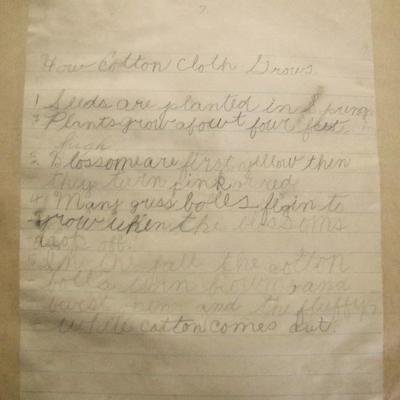 7.
How Cotton Cloth Grows.
1 Seeds are planted in Spring
2 Plants grow about four feet
high
3. Blossom are first yellow then
they turn pink or red
4. Many gress bolls figin to
grow when the blossoms
drop off.
5. In the fall the cotton
bolls turn brown and
burst open and the fluffy
white cotton comes out.